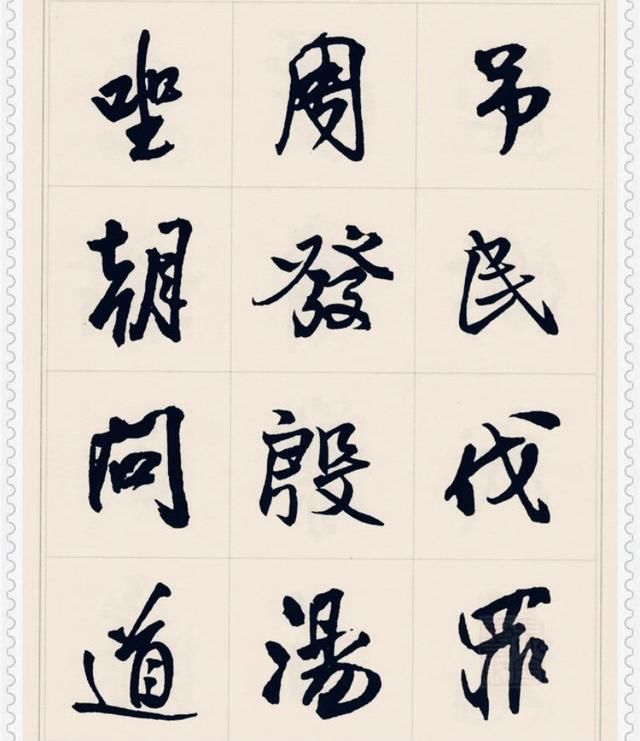 吊民伐罪
周發殷湯
坐朝問道